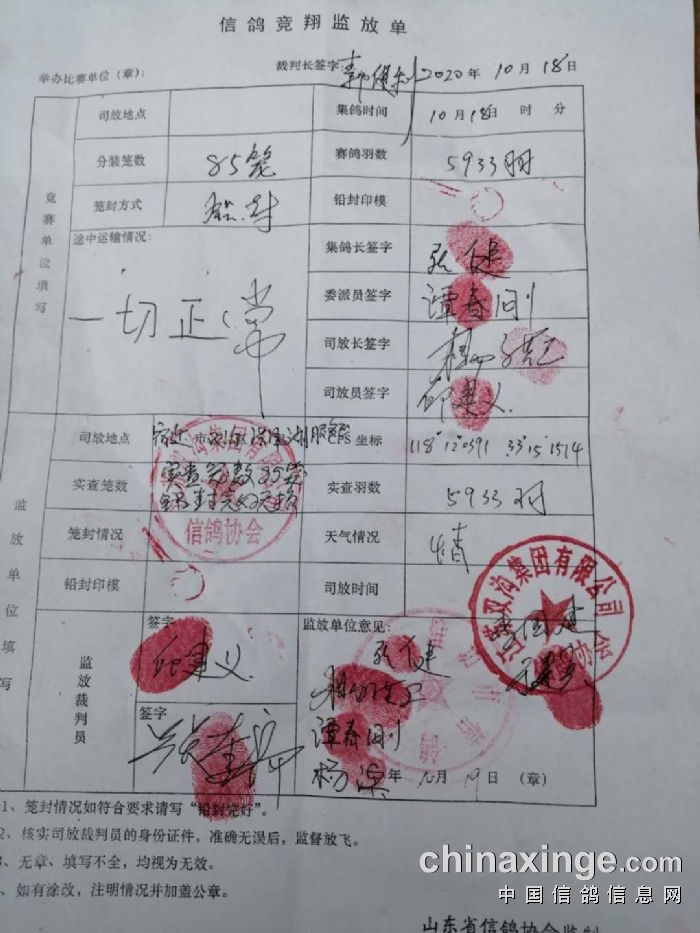 信鸽竞翔监放单
举办比赛单位（章）： 裁判长签字： 2020年 10月 18日
竞赛单位填写
司放地点 集鸽时间 10月18日 时 分
分装笼数 85笼 赛鸽羽数 5933羽
笼封方式 铅封印模
途中运输情况： 一切正常
集鸽长签字 张健
委派员签字 谭春刚
司放长签字
司放员签字 邱建义
监放单位填写
司放地点 宿迁市 坐标 118°12'0391 33°15'1514
实查笼数 实查笼数85笼 实查羽数 5933羽
笼封情况 天气情况 晴
铅封印模 司放时间
信鸽协会
江苏双沟集团有限公司
监放裁判员
签字 邱建义
签字
监放单位意见：
张健
谭春刚
年 10月 19日 （章）
1、笼封情况如符合要求请写“铅封完好”。
2、核实司放裁判员的身份证件，准确无误后，监督放飞。
3、无章、填写不全，均视为无效。
、如有涂改，注明情况并加盖公章。
山东省信鸽协会监制
chinaxinge.com
中国信鸽信息网